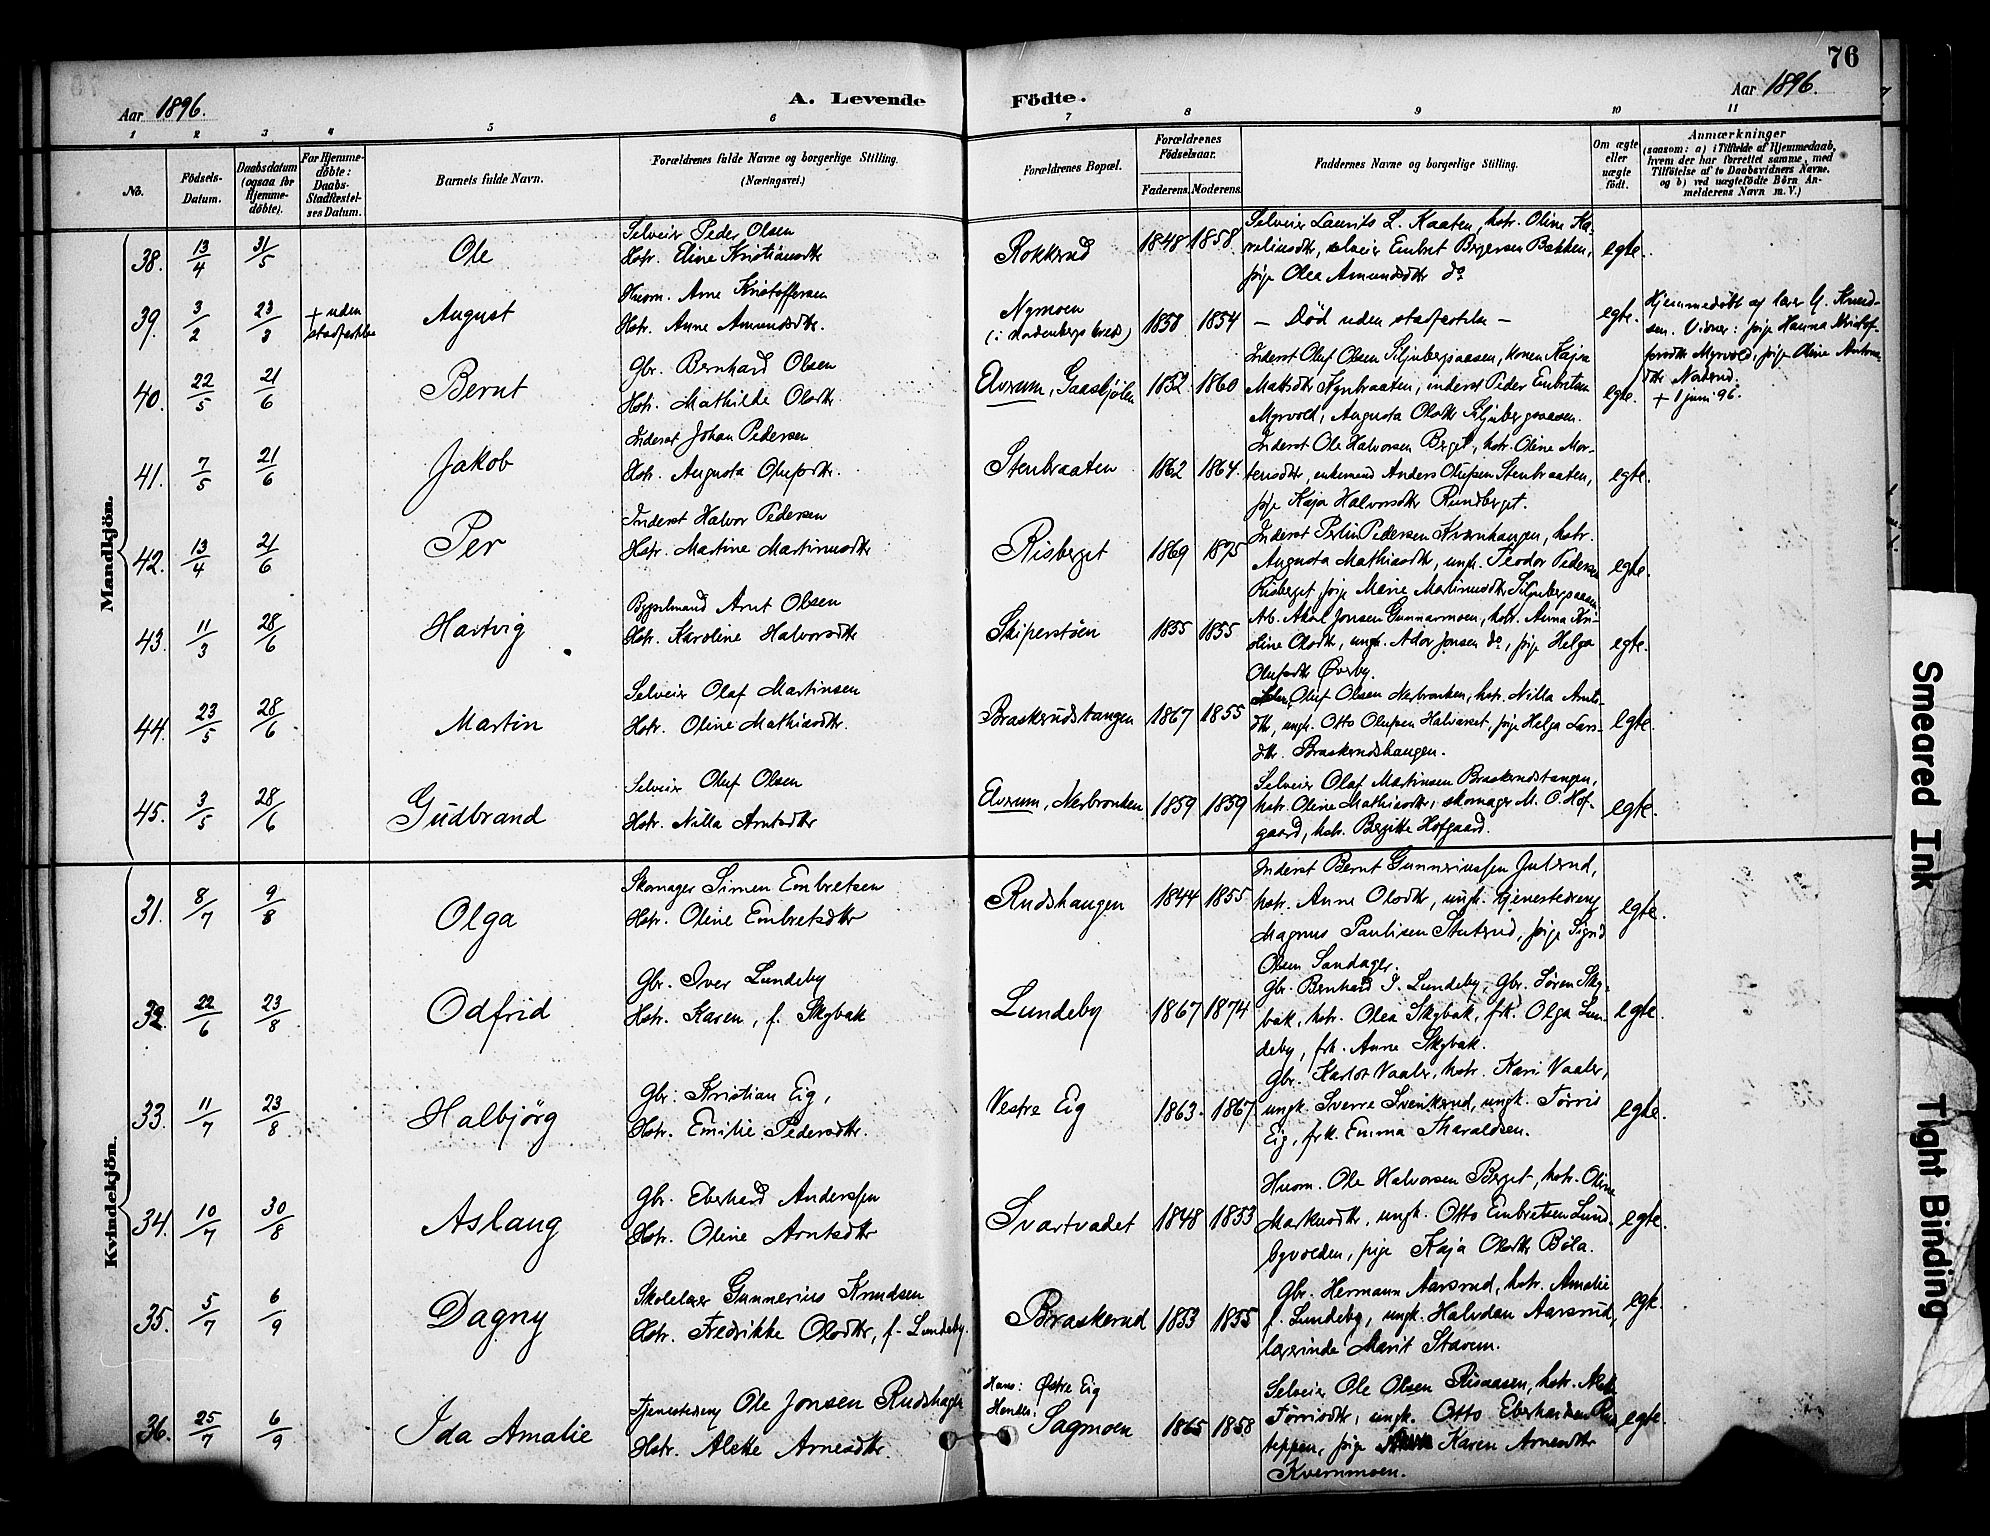 76
Aar 1896.
A. Levende Födte.
Aar 1896.
1 2 3 4 5 6 7 8 9 10 11
No.
Födsels-Datum.
Daabsdatum (ogsaa for Hjemme-döbte).
For Hjemme-döbte: Daabs-Stadfæstel-ses Datum.
Barnets fulde Navn.
Forældrenes fulde Navne og borgerlige Stilling.
(Næringsvei.)
Forældrenes Bopæl.
Forældrenes Födselsaar.
Faderens. Moderens.
Faddernes Navne og borgerlige Stilling.
Om ægte eller uægte födt.
Anmærkninger
(saasom: a) i Tilfælde af Hjemmedaab,
hvem der har forrettet samme, med
Tilföielse af to Daabsvidners Navne.
og b) ved uægtefödte Börn An-
melderens Navn m. V.)
Mandkjön.
38. 13/4 31/5 Ole
Selveier Peder Olsen
Hstr. Eline Kristiansdtr
Rokkerud 1848 1858
Selveier Laurits L. Kaaten, hstr. Oline Ka-
relius­dtr, selveier Embret Birgersen Bakken,
pige Olea Amundsdtr do
egte.
39. 3/2 23/3 + uden stadfæstelse August
Husm. Arne Kristoffersen
Hstr. Anne Amundsdtr.
Nymoen
1858 1854
— Död uden stadfæstelse —
egte.
Hjemmedöbt af lærer G. Knud-
sen. Vidner: pige Hanna Kristof-
fersdtr Myrvold, pige Oline Anton-
dtr Naberud.
+ 1 juni 96.
40. 22/5 21/6 Bernt
Gbr. Bernhard Olsen
Hstr. Mathilde Olsdtr.
Elverum, Gaasbjölen 1852 1860
Inderst Oluf Olsen Siljubergsaasen, konen Kajsa
Matsdtr Kynbraaten, inderst Peder Embretsen
Myrvold, Augusta Olsdtr Siljubergsaasen.
egte.
41. 7/5 21/6 Jakob
Inderst Johan Pedersen
Hstr. Augusta Olufsdtr.
Stenbraaten 1862 1864
Inderst Ole Halvorsen Berget, hstr. Oline Mar-
kusdtr, enkemand Anders Olufsen Stenbraaten,
pige Kaja Halvorsdtr Rundberget.
egte.
42. 13/4 21/6 Per
Inderst Halvor Pedersen
Hstr. Martine Martinusdtr
Risberget 1869 1875
Inderst Petter Pedersen Kværnhaugen, hstr.
Augusta Mathiasdtr, ungk. Teodor Pedersen
Risberget, pige Marie Martinusdtr Siljubergsaasen
egte.
43. 11/3 28/6 Hartvig
Bygselmand Arnt Olsen
Hstr. Karoline Halvorsdtr
Skiperstöen 1855 1855
Arb. Aksel Jonsen Gunnarmoen, hstr. Anna Ka-
roline Olsdtr, ungk. Ador Jonsen do, pige Helga
Olufsdtr Øvreby.
egte.
44. 23/5 28/6 Martin
Selveier Olaf Martinsen
Hstr. Oline Mathiasdtr.
Braskerudstangen 1867 1855
Oluf Olsen Nerbronken, hstr. Nilla Arnts-
dtr, ungk. Otto Olufsen Halvorset, pige Helga Lars-
dtr Braskerudshaugen.
egte.
45. 3/5 28/6 Gudbrand
Selveier Oluf Olsen
Hstr. Nilla Arntsdtr
Elverum, Nerbronken 1859 1859
Selveier Olaf Martinsen Braskerudstangen,
hstr. Oline Mathiasdtr, skomager M. O. Hof-
gaard, hstr. Birgitte Hofgaard.
egte.
Kvindekjön.
31. 8/7 9/8 Olga
Skomager Simen Embretsen
Hstr. Oline Embretsdtr
Rudshaugen 1844 1855
Inderst Bernt Gunneriussen Julsrud,
hstr. Anne Olsdtr, ungk. tjenestedreng
Magnus Paulisen Stutrud, pige Sigrid
Olsen Sandager.
egte.
32. 22/6 23/8 Odfrid
Gbr. Iver Lundeby
Hstr. Karen, f. Skybak
Lundeby 1867 1874
Gbr. Bernhard I. Lundeby, Gbr. Sören Sky-
bak, hstr. Olea Skybak, frk. Olga Lun-
deby, frk. Anne Skybak.
egte.
33. 11/7 23/8 Halbjörg
Gbr. Kristian Eig,
Hstr. Emilie Pedersdtr.
Vestre Eig 1863 1867
Gbr. Karlot Vaaler, hstr. Kari Vaaler,
ungk. Sverre Svenkerud, ungk. Törris
Eig, frk. Emma Tharaldsen.
egte.
34. 10/7 30/8 Aslaug
Gbr. Eberhard Anderssen
Hstr. Oline Arntsdtr
Svartvadet 1848 1853
Husm. Ole Halvorsen Berget, hstr. Oline
Markusdtr, ungk. Otto Embretsen Lund-
byvolden, pige Kaja Olsdtr Böla.
egte.
35. 5/7 6/9 Dagny
Skolelærer Gunnerius Knudsen
Hstr. Fredrikke Olsdtr, f. Lundeby.
Braskerud 1853 1855
Gbr. Hermann Aarsrud, hstr. Amalie
f. Lundeby, ungk. Halvdan Aarsrud,
lærerinde Marit Stavem.
egte.
36. 25/7 6/9 Ida Amalie
Tjenestedreng Ole Jonsen Rudshagen
Hstr. Alette Arnesdtr.
Hans: Østre Eig
Hendes: Sagmoen 1865 1858
Selveier Ole Olsen Risaasen, hstr.
Törrisdtr, ungk. Otto Eberhardsen
teppen, pige Karen Arnesdtr
Kvernmoen.
egte.
Smeared Ink
Tight Binding